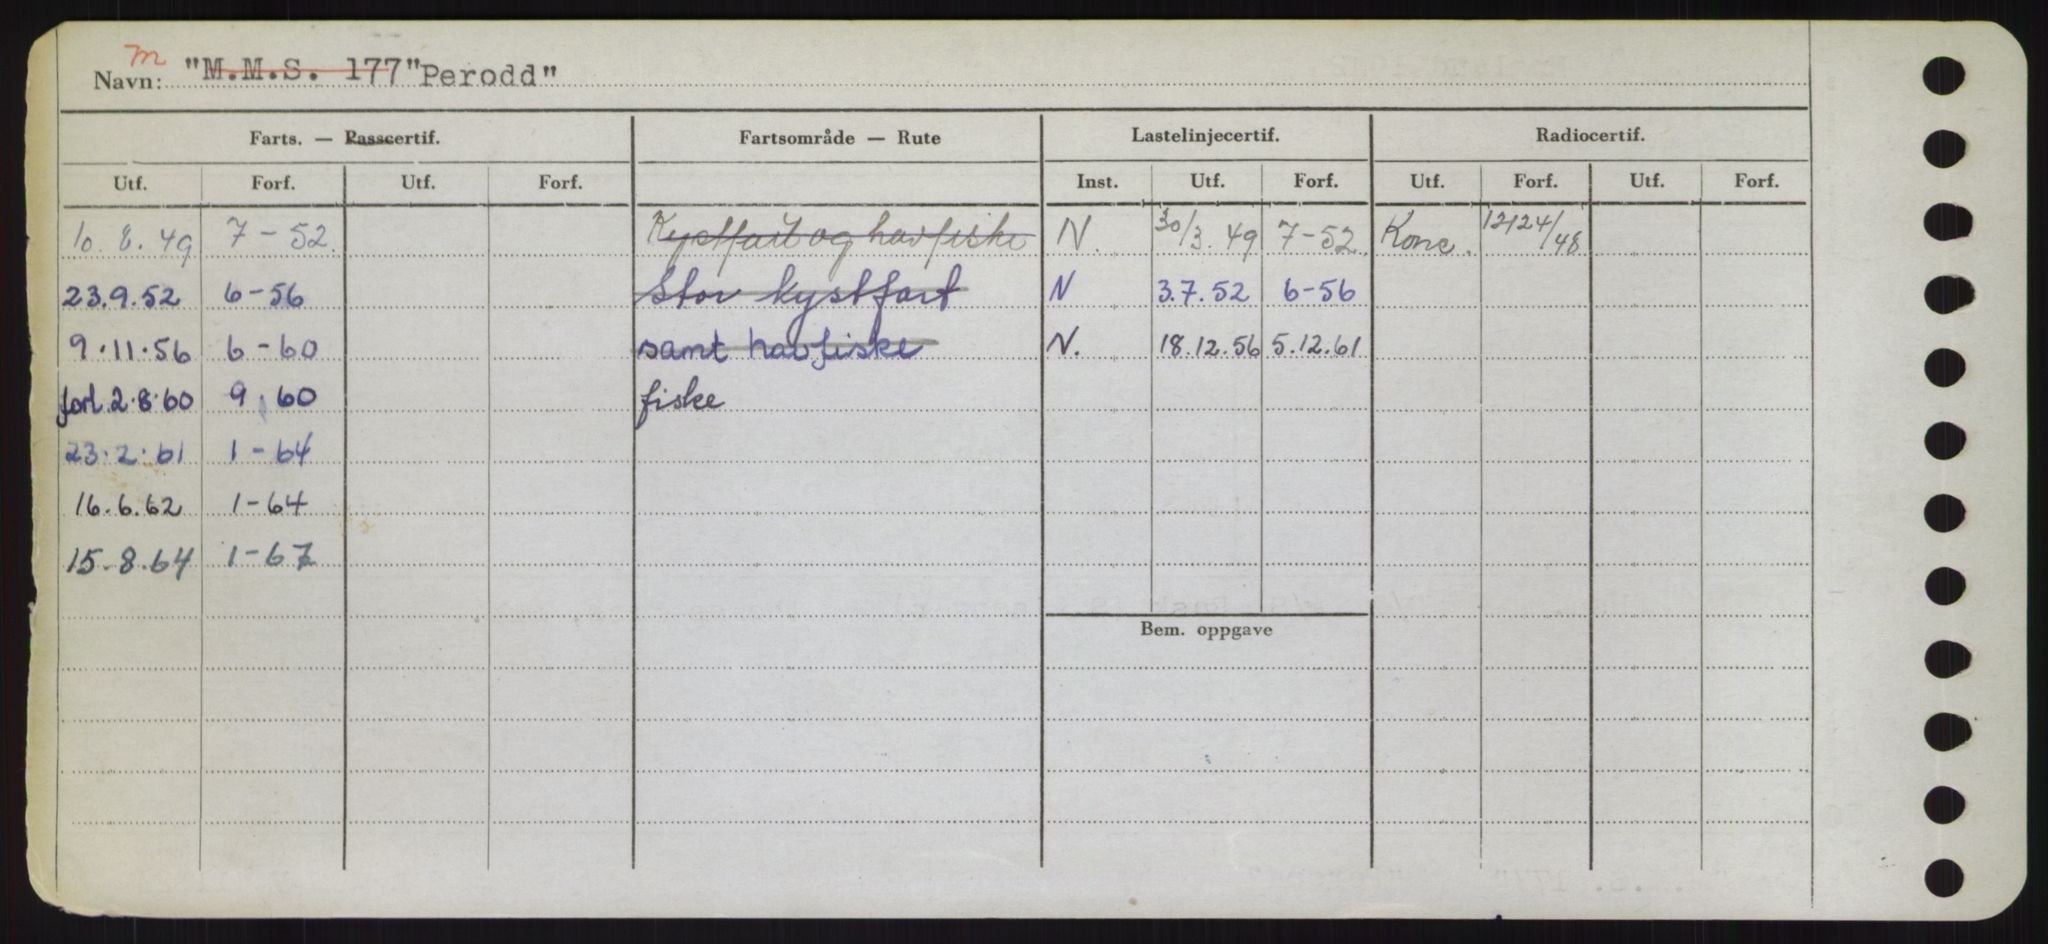 m
Navn: "M.M.S. 177" Perodd"
Farts. — Passcertif. Fartsområde — Rute Lastelinjecertif. Radiocertif.
Utf. Forf. Utf. Forf. Inst. Utf. Forf. Utf. Forf. Utf. Forf.
10.8.49 7-52. Kystfart og havfiske N. 30/3.49 7-52 Konc. 12124/48
23.9.52 6-56 Stor kystfart N 3.7.52 6-56
9.11.56 6-60 samt havfiske N. 18.12.56 5.12.61
forl. 2.8.60 9.60 fiske
23.2.61 1-64
16.6.62 1-64
15.8.64 1-67
Bem. oppgave